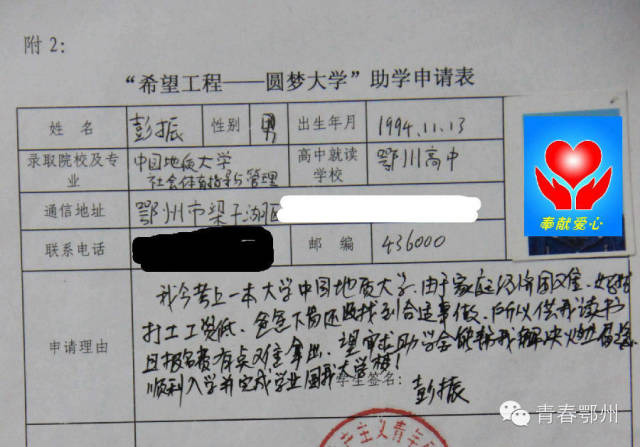 附2：
“希望工程——圆梦大学”助学申请表
姓 名 彭振 性别 男 出生年月 1994.11.13
录取院校及专业 中国地质大学 社会体育指导与管理 高中就读学校 鄂州高中
通信地址 鄂州市梁子湖区
联系电话 邮 编 436000
奉献爱心
申请理由
我今考上一本大学中国地质大学.由于家庭经济困难.妈妈
打工工资低、爸爸下岗还没找到合适事做、所以供我读书
且报名费有点难拿出、望 求助学会能帮我解决燃眉之急
顺利入学并完成学业圆我大学梦！
学生签名：彭振
主主义青年
青春鄂州